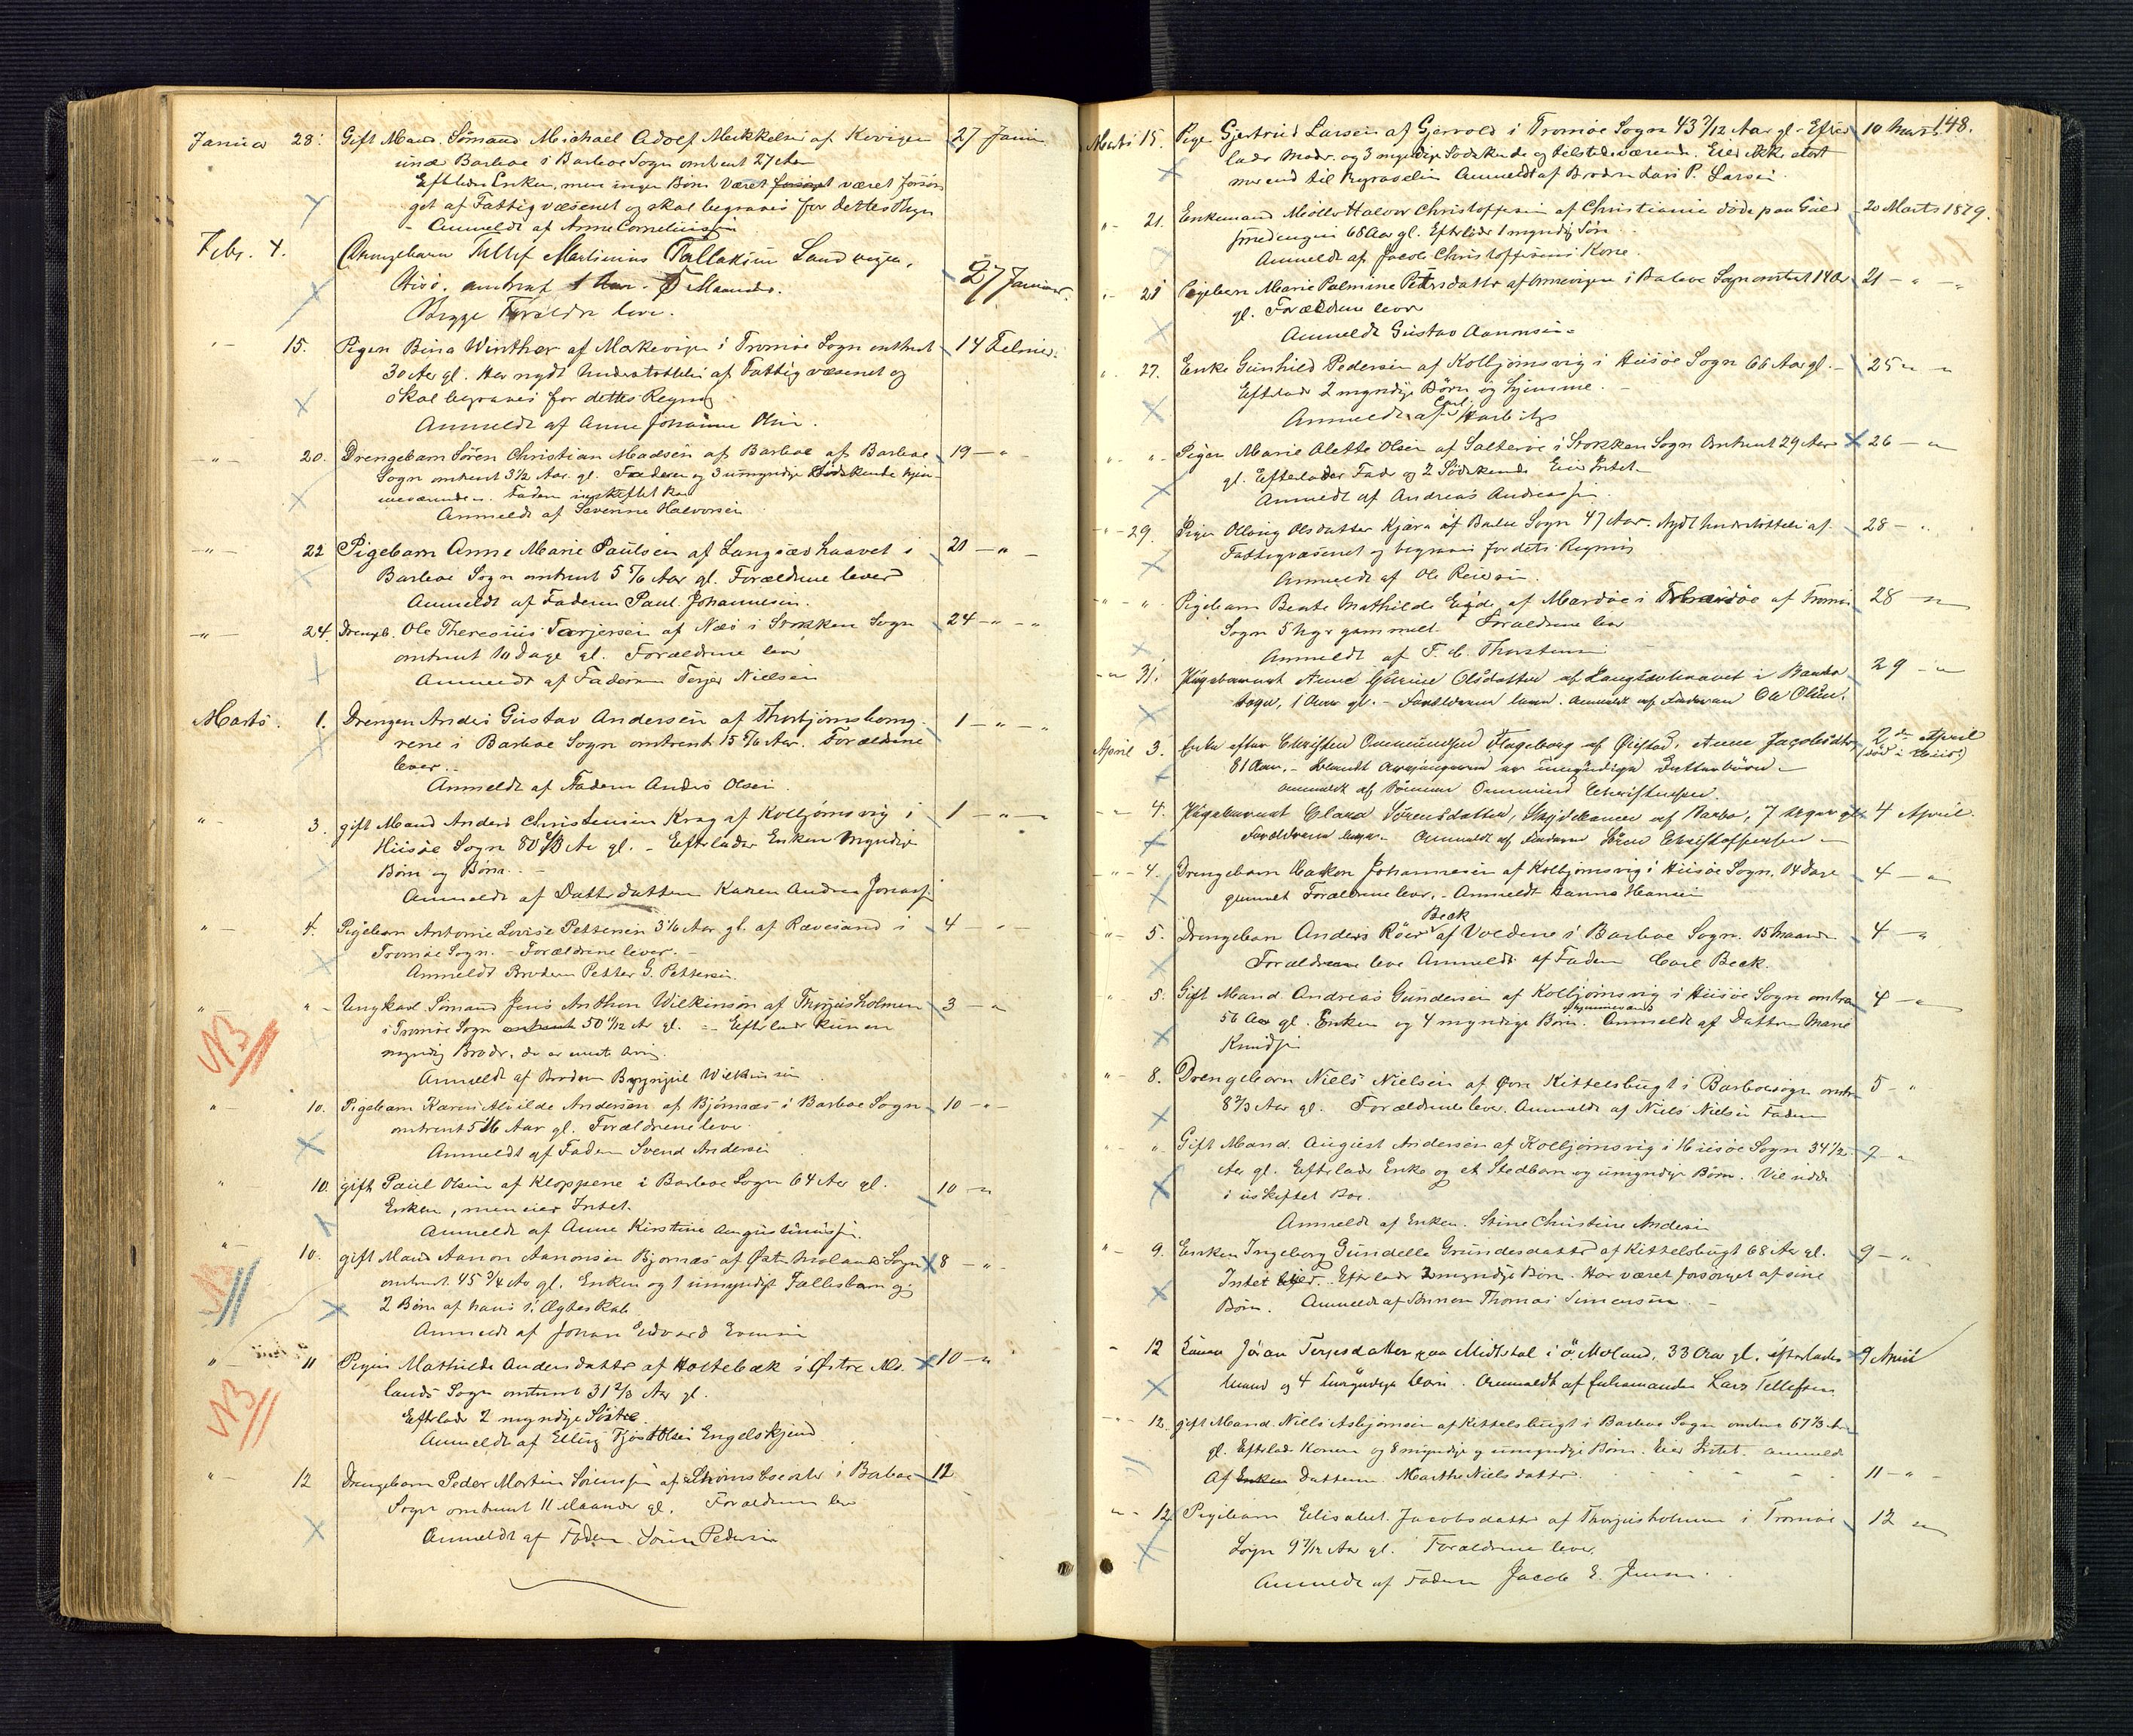 Januar 28. Gift Mand. Sömand Michael Adolf Mikkelsen af 27 Januar
Barboe i Barboe Sogn omtrent 27 Aar
Efterlader Enken, men ingen Børn Været forsørget været forsør-
get af Fattigvæsenet og skal begraves for dettes Regn
- Anmeldt af Anne Corneliussen
Febr. 4. Drengebarn Tellef Martinius Tallaksen Sandvigen, 27 Januar
Hisö, omtrent 5 Maaneder.
Begge Forældre leve.
" - 15. Pigen Bina Winther af i Tromøe Sogn omtrent 14 Februar
30 Aar gl. Har nydt Understøttelse af Fattigvæsenet og
skal begraves for dettes Regning
Anmeldt af Anne Johanne Olsen.
- " - 20. Drengebarn Sören Christian Madsen af Barboe af Barboe 19 - " -
Sogn omtrent 3½ Aar gl. Faderen og 3 umyndige Södskende hjem-
meværende. Faderen uskiftet Bo
Anmeldt af Severine Halvorsen
- " - 22 Pigebarn Anne Marie Paulsen af Langsævhaavet i 21 - " -
Barboe Sogn omtrent 5 5/6 Aar gl. Forældrene lever
Anmeldt af Faderen Paul Johannesen.
- " - 24. Drengb. Ole Theresius Terjesen af Næs i Stokken Sogn 24 - " - "
omtrent 10 Dage gl. Forældrene lever
Anmeldt af Faderen Terjer Nielsen
Marts. 1. Drengen Anders Gustav Andersen af 1 - " - "
rene i Barboe Sogn omtrent 15 5/6 Aar. Forældrene
lever.
Anmeldt af Faderen Anders Olsen.
" - 3. gift Mand Anders Christensen Krag af Kolbjörnsvig i 1 - " -
Hisöe Sogn 80 Aar gl. - Efterlader Enken Myndige
Børn og Børns. -
Anmeldt af Datterdatteren Karen Andrea
" - 4. Pigebarn Antonie Lovise Pettersen 3 1/6 Aar gl. af Rævesand i 4 - " -
Tromøe Sogn. - Forældrene lever. -
Anmeldt Broderen Petter G. Pettersen.
" " - Ungkarl Sömand Jens Anthon Wilkinson af Thorjusholmen 3 - "
NB i Tromøe Sogn omtrent 50 11/12 Aar gl. - Efterlader kun en
myndig Broder, der er eneste Arving.
Anmeldt af Broderen Wilkinson
" - 10. Pigebarn Karen Alvilde Andersen af Bjørnæs i Barboe Sogn 10 - " -
omtrent 5 Aar gl. Forældrene lever
Anmeldt af Faderen Svend Andersen
" - 10. gift Paul Olsen af Kloppene i Barboe Sogn 64 Aar gl. 10 - "
Enken, men eier Intet.
Anmeldt af Anne Kirstine Augustinussen.
" - 10. gift Mand Aanon Aanonsen Bjørnæs af Østre Molands Sogn 8 - " -
NB omtrent 45 3/4 Aar gl. Enken og 1 umyndigt Fællesbarn og
2 Børn af hans 1. Ægteskab.
Anmeldt af Johan Edvard Evensen
" - 11 Pigen Mathilde Andersdatter af Holtebæk i Østre Mo- 10 - "
NB lands Sogn omtrent 31 2/3 Aar gl.
Efterlader 2 myndige Søstre.
Anmeldt af Elling Engelskjend
" - 12 Drengebarn Peder Martin Sørensen af Strømsbo i Barboe 12
Sogn omtrent 11 Maaneder gl. Forældrene lever
Anmeldt af Faderen Sören Pedersen
148.
Marts 15. Pige Gjertrud Larsen af Gjervold i Tromøe Sogn 43 7/12 Aar gl. - Efter- 10 Marts
lader Moder og 3 myndige Södskende og tilstedeværende. Eier ikke stort
mer end til Begravelsen Anmeldt af Broderen Lars P. Larsen.
" - 21. Enkemand Möller Halvor Christoffersen af Christiania döde paa Guld- 20 Marts 1879.
smedengen 68 Aar gl. Efterlader 1 myndig Sön.
Anmeldt af Jacob Christoffersens Kone.
" - 21 Pigebarn Marie Palmine Petersdatter af i Barboe Sogn omtrent 1 Aar 21 - " - "
gl. Forældrene lever
Anmeldt Gustav Aanonsen.
" 27. Enke Gunhild Pedersen af Kolbjørnsvig i Hisöe Sogn 66 Aar gl. - 25 " "
Efterlader 2 myndige Børn og hjemme. -
Anmeldt af Carl Harbitz
" " - Pigen Marie Olette Olsen af Salterøe i Stokken Sogn Omtrent 29 Aar 26 - "
gl. Efterlader Fader og 2 Södskende Eier Intet
Anmeldt af Andreas Andreassen.
" - 29. Pigen Olsdatter Kjærr af Barboe Sogn 47 Aar. Nydt Understöttelse af 28 - "
Fattigvæsenet og begraves for dets Regning
Anmeldt af Ole Reiersen.
- " - " Pigebarn Beate Mathilde Eyde af Mærdøe i af Tromøe 28 - "
Sogn 5 Uger gammelt. Forældrene lever
Anmeldt af T. C. Thorstensen
- " 31. Pigebarnet Anne Oline Olsdatter af Langsævhaavet i Barboe 29 - "
Sogn, 1 Aar gl. - Forældrene lever. Anmeldt af Faderen Ole Olsen.
April 3. Enke efter Christen Ommundsen Flageborg af Öiestad, Anne Jacobsdtr 2den April
81 Aar. - blandt Arvingerne er umyndige Datterbörn - (död i Hisö)
Anmeldt af Sönnen Ommund Christensen.
- " - 4. Pigebarnet Clara Sörensdatter, af Barbo, 7 Uger gl. 4 April.
Forældrene lever. - Anmeldt af Faderen Sören Christoffersen -
- " - 4. Drengebarn Haakon Johannesen af Kolbjørnsvig i Hisöe Sogn. 14 Dage 4 - "
gammel Forældrene lever. - Anmeldt Hanna Hansen
" - 5. Drengebarn Anders Röer Beck af Voldene i Barboe Sogn. 15 Maaneder 4 - "
Forældrene lever Anmeldt af Faderen Carl Beck.
" 5. Gift Mand Andreas Gundersen af Kolbjørnsvig i Hisöe Sogn omtrent 4 - "
56 Aar gl. Enken og 4 myndige hjemmeværende Børn. Anmeldt af Datteren Marie
Knudsen
" - 8. Drengebarn Niels Nielsen af Øvre Kittelsbugt i Barboesogn omtr 5 - "
8 2/3 Aar gl. Forældrene lever. Anmeldt af Niels Nielsen Faderen
" - " Gift Mand August Andersen af Kolbjørnsvig i Hisöe Sogn 34½ 7 "
Aar gl. Efterlader Enke og et Stedbarn og umyndige Børn. Vil sidde
i uskiftet Bo.
Anmeldt af Enken. Stine Christine Andersen
" - 9. Enken Ingeborg Gundelle Gundersdatter af Kittelsbugt 68 Aar gl. 9 - "
Intet eier. Efterlader 2 myndige Børn. Har været forsørget af sine
Børn. Anmeldt af Sönnen Thomas Simonsen -
- 12 Konen Jöran Terjesdatter paa Midtstøl i ö. Moland, 33 Aar gl. efterlader 9 April
Mand og 4 umyndige børn. Anmeldt af Enkemanden Lars Tellefsen
- " - 12. gift Mand Niels Asbjørnsen af Kittelsbugt i Barboe Sogn omtrent 67 1/3 Aar
gl. Efterlader Konen og 8 myndige og umyndige Børn. Eier Intet. anmeldt
Af Enken Datteren Marthe Nielsdatter. 11 - " -
" - 12 Pigebarn Elisabet Jacobsdatter af Thorjusholmen i Tromøe 12 "
Sogn 9 7/12 Aar gl. Forældrene lever.
Anmeldt af Faderen Jacob E. Jensen.